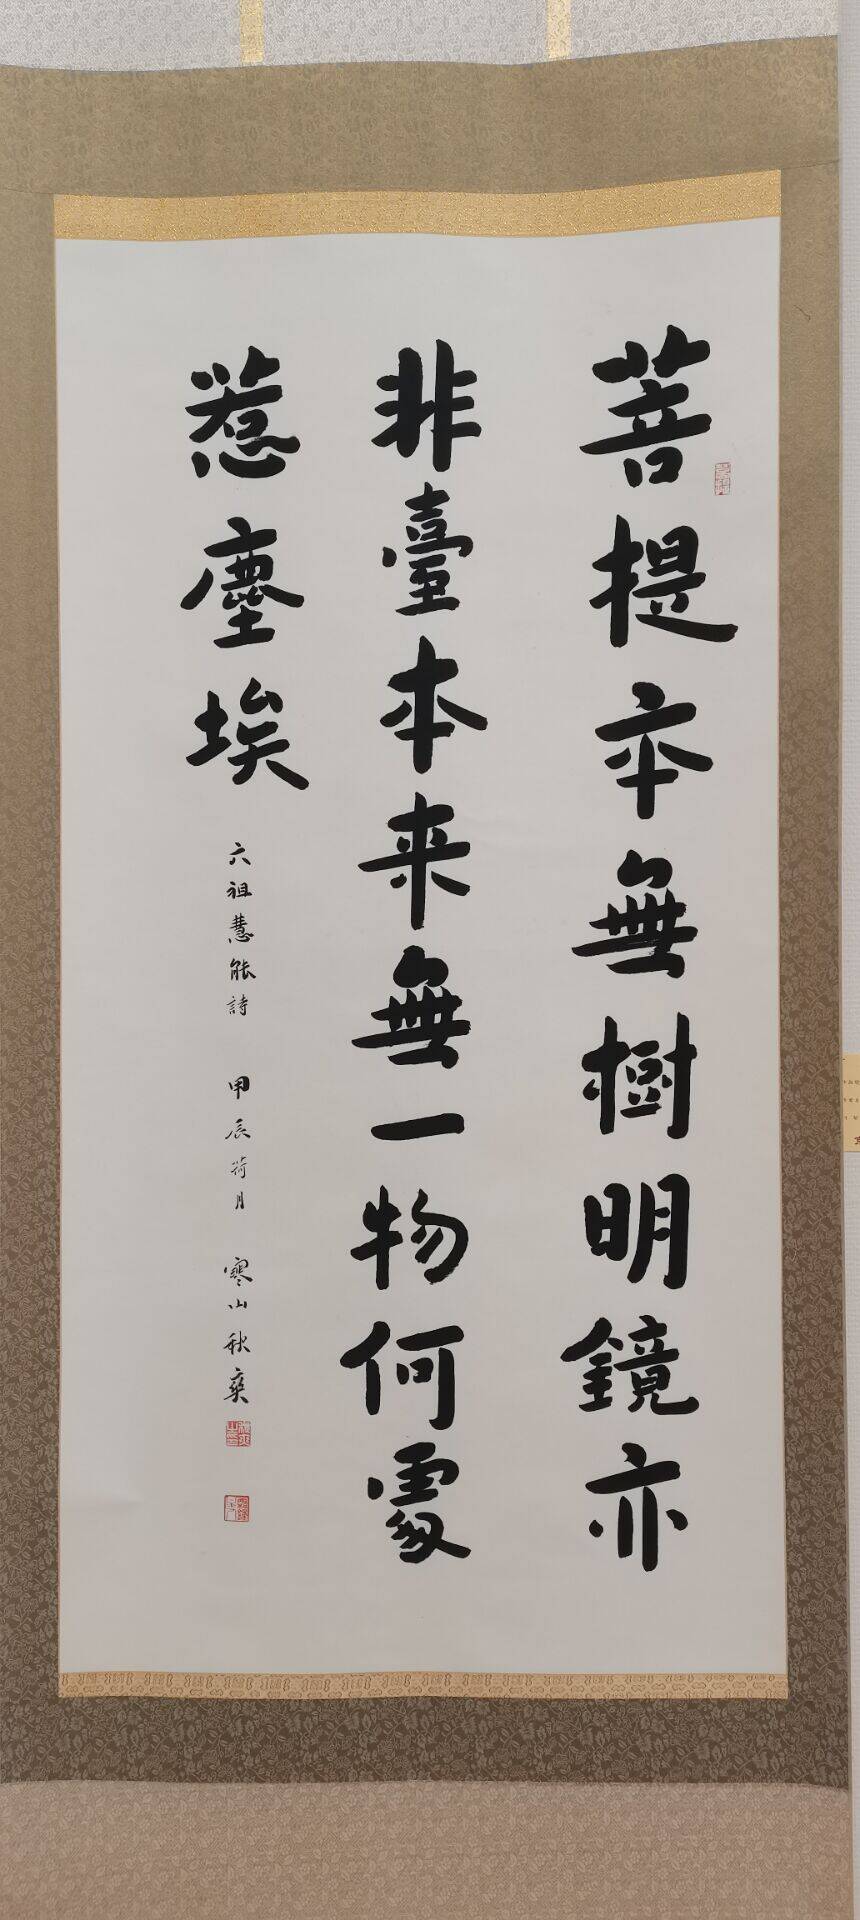 菩提本無樹明鏡亦
非臺本来無一物何處
惹塵埃
六祖慧能詩 甲辰荷月 寒山秋爽